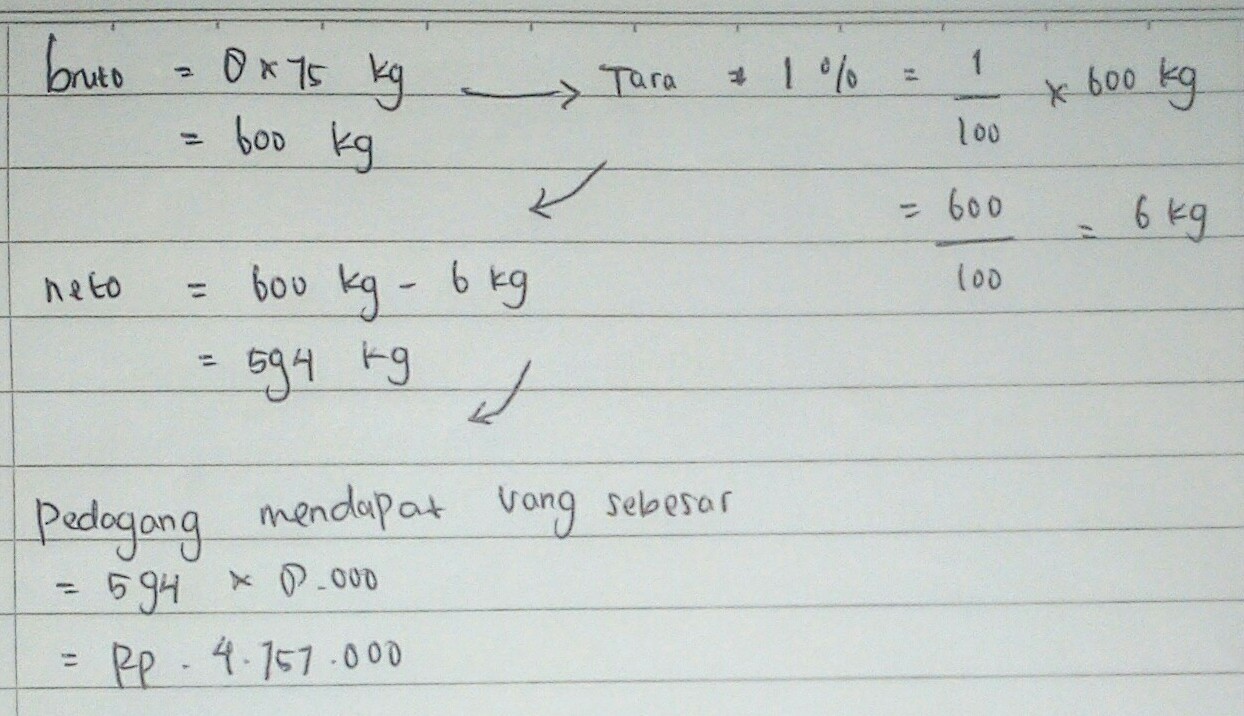 bruto = 8 × 75 kg → Tara = 1 % = 1/100 × 600 kg
= 600 kg
= 600/100 = 6 kg
neto = 600 kg - 6 kg
= 594 kg
Pedagang mendapat uang sebesar
= 594 × 8.000
= Rp. 4.757.000